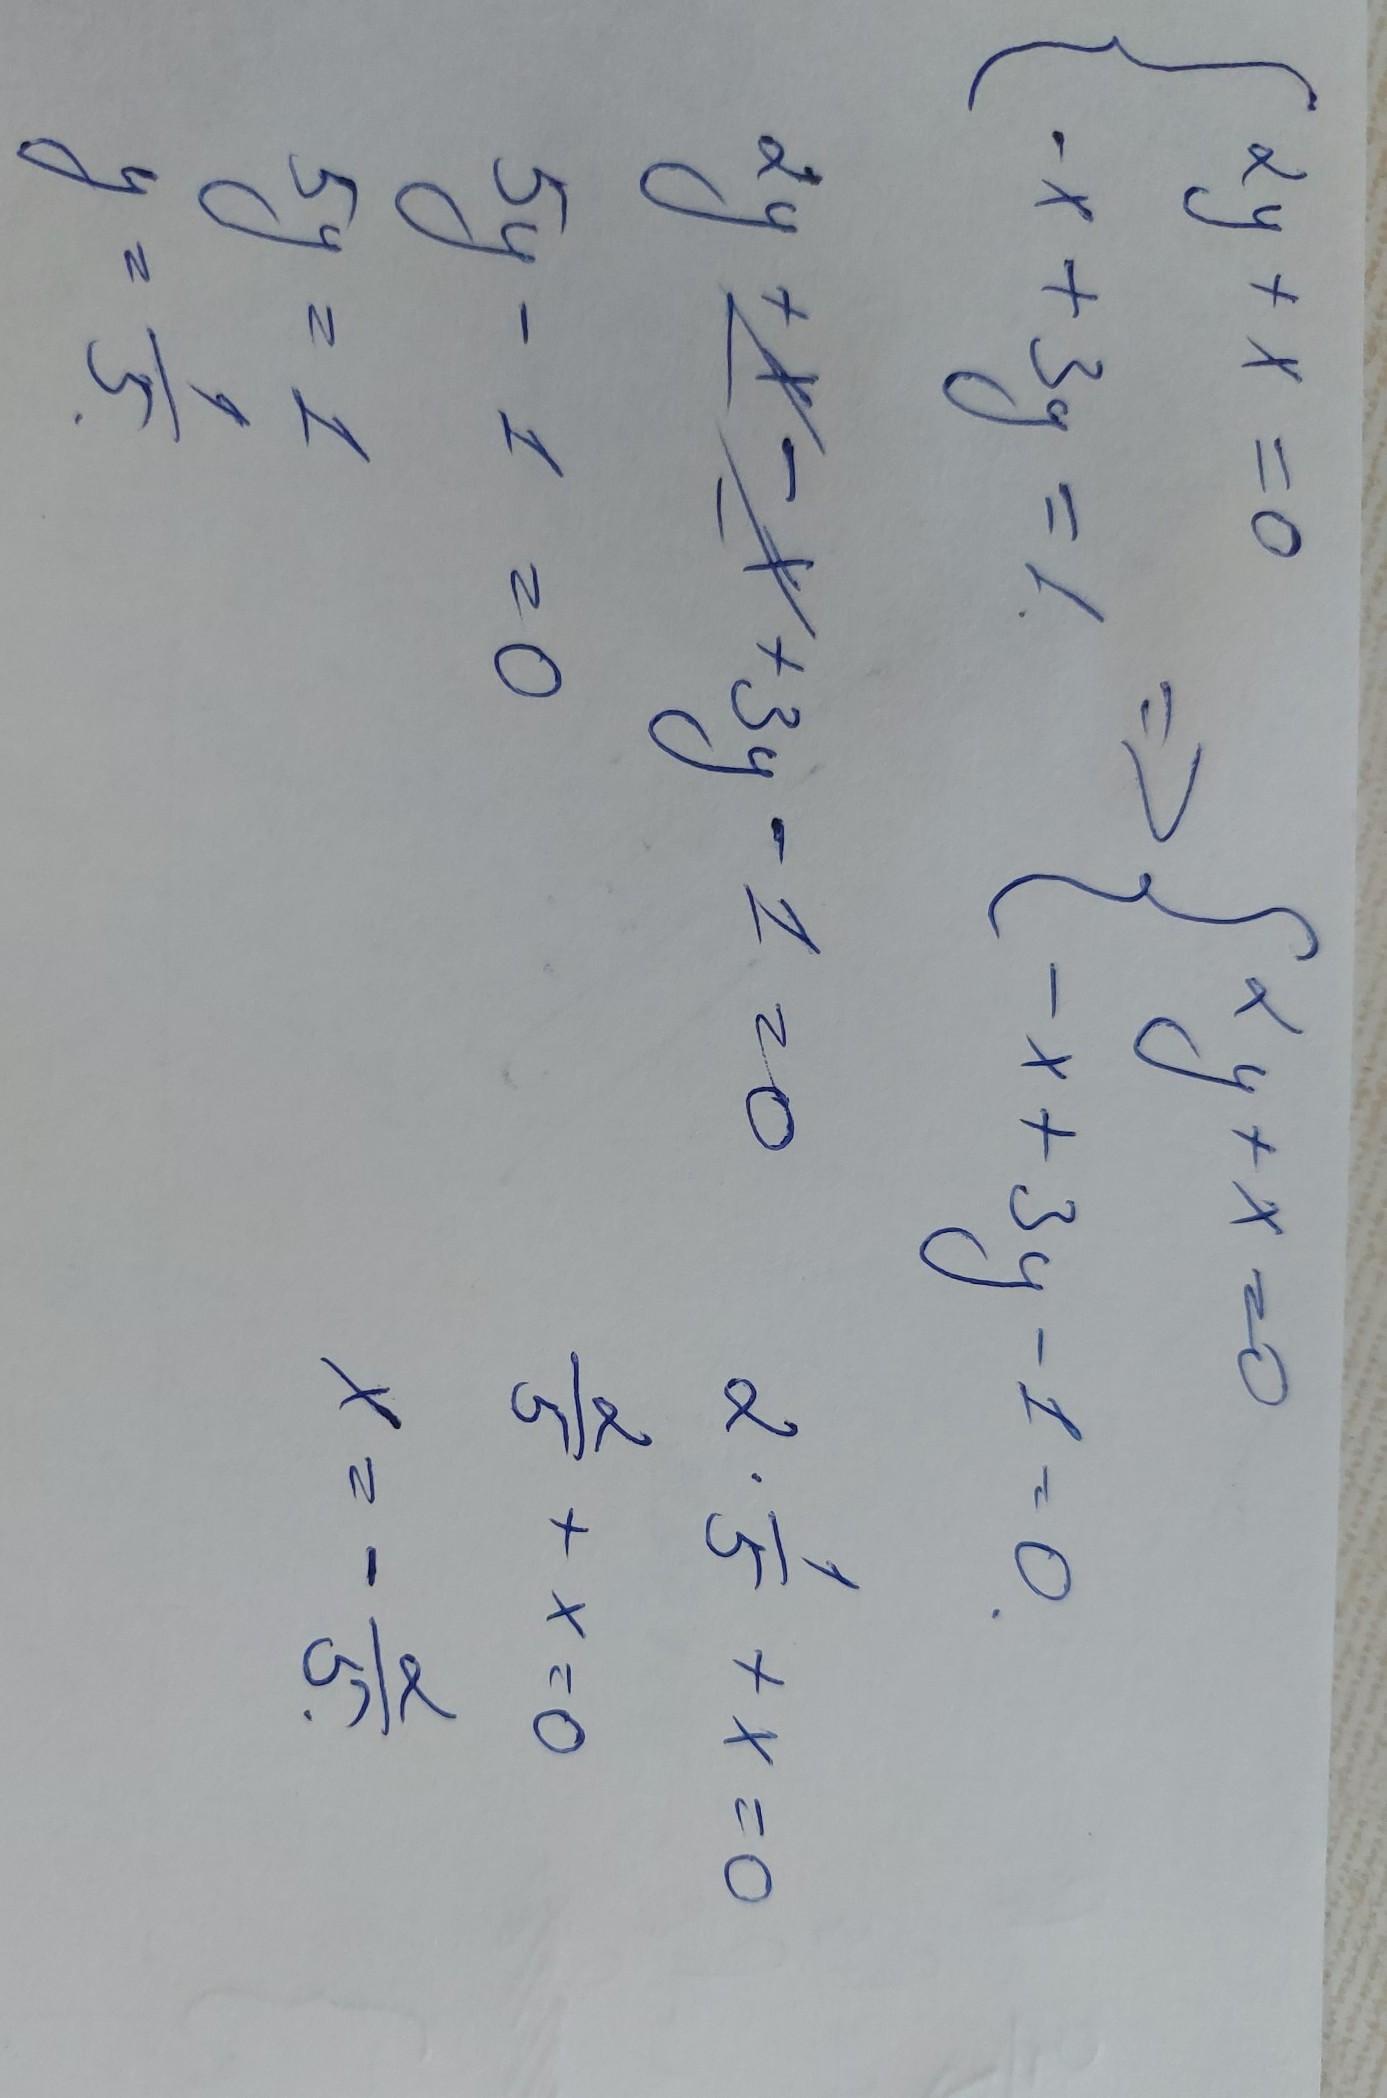 { 2y + x = 0 => { 2y + x = 0
-x + 3y = 1. -x + 3y - 1 = 0.
2y + x - x + 3y - 1 = 0
5y - 1 = 0
5y = 1
y = 1/5.
2 · 1/5 + x = 0
2/5 + x = 0
x = - 2/5.